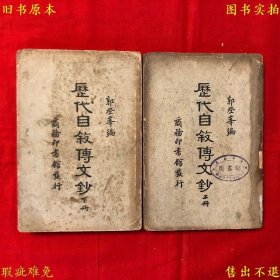 旧书原本
图片实拍
郭登峯編
歷代自敘傳文鈔 上冊
商務印書館發行
郭登峯編
歷代自敘傳文鈔 下冊
商務印書館發行
瑕疵难免
售出不退